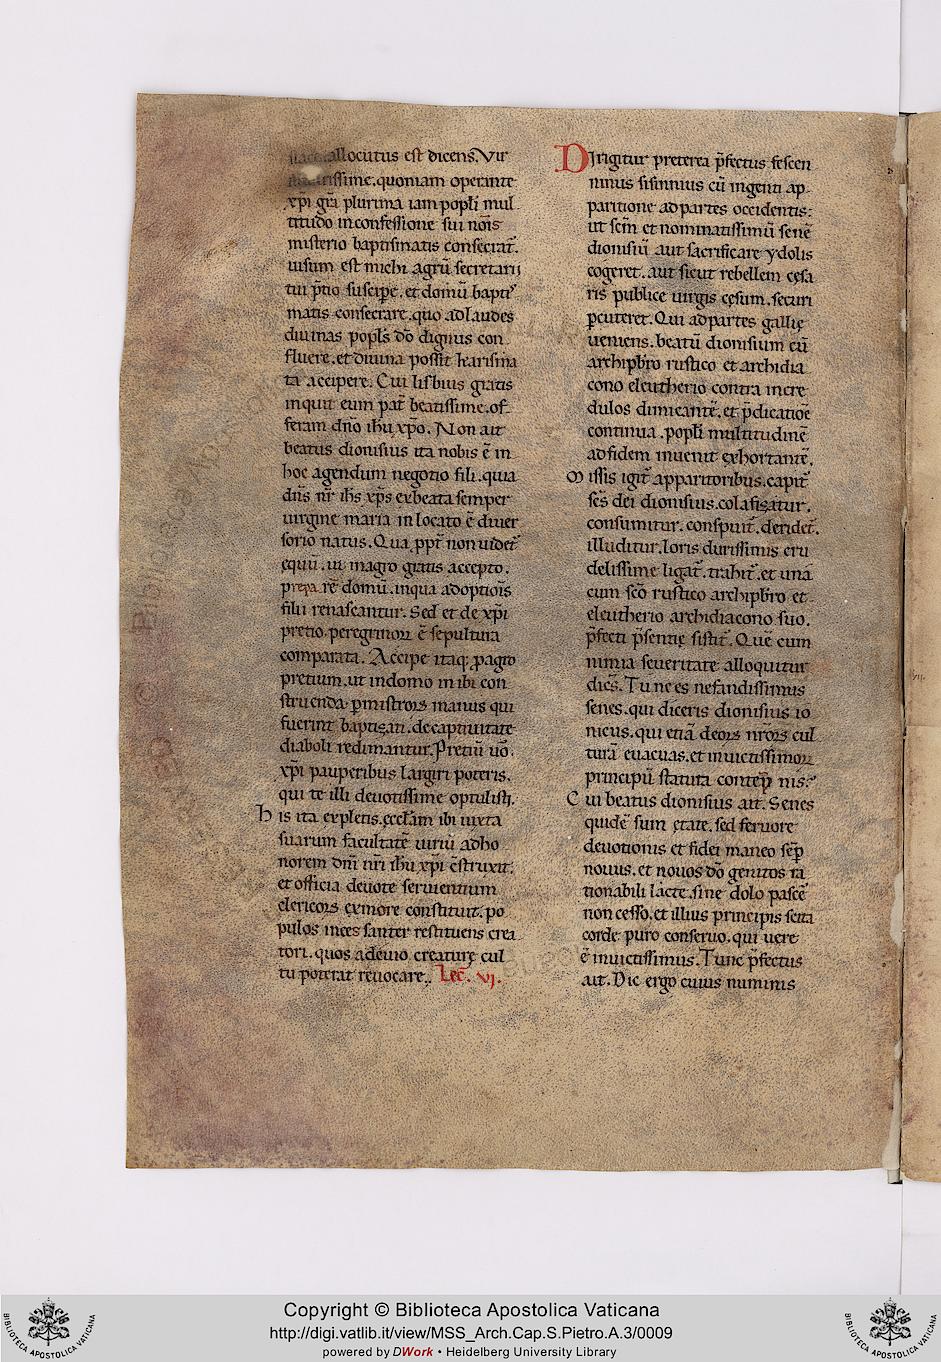 allocutus est dicens. Vir
issime. quoniam operante
xp̄i gr̄a plurima iam popl̄i mul
titudo in confessione sui nōis
misterio baptismatis consecrat̄.
uisum est michi agrū secretarij
tui p̄tio suscipe. et domū bapti
matis consecrare. quo ad laudes
diuinas popl̄s dō dignus con
fluere. et diuina possit harisma
ta accipere. Cui lisbius gratis
inquit eum pat̄ beatissime. of
feram dn̄o ihū xp̄o. Non ait
beatus dionisius ita nobis ē in
hoc agendum negotio fili. quia
dn̄s nr̄ ihs xp̄s ex beata semper
uirgine maria in locato ē diuer
sorio natus. Qua ppt̄ non uidet̄
ęquū. ut magro gratis accepto.
prepare domū. in qua adoptiōis
filii renascantur. Sed et de xp̄i
pretio. peregrinoꝝ ē sepultura
comparata. Accipe itaq; p agro
pretium. ut in domo in ibi con
struenda. p ministrors manus qui
fuerint baptizati. de captiuitate
diaboli redimantur. Pretiū uō.
xp̄i pauperibus largiri poteris.
qui te illi deuotissime optulisti.
His ita expletis. ęccl̄am ibi iuxta
suarum facultatē uiriū ad ho
norem dn̄i nr̄i ihū xp̄i c̄struxit.
et officia deuote seruientium
clericors ex more constituit. po
pulos incessanter restituens crea
tori. quos a deuio creaturę cul
tu poterat reuocare. Lec̄. vj.
Dirigitur preterea p̄fectus fescen
ninus sisinnius cū ingenti ap
paritione ad partes occidentis:
ut sc̄m et nominatissimū senē
dionisiū aut sacrificare ydolis
cogeret. aut sicut rebellem cęsa
ris publice uirgis cęsum. securi
pcuteret. Qui ad partes gallię
ueniens. beatū dionisium cū
archipbr̄o rustico et archidia
cono eleutherio contra incre
dulos dimicantē. et p̄dicatiōe
continua. popl̄i multitudinē
ad fidem inuenit exhortantē.
Missis igit̄ apparitoribus. capit̄
ses dei dionisius. colafizatur.
consumitur. conspuit̄. deridet̄.
illuditur. loris durissimis cru
delissime ligat̄. trahit̄. et una
cum sc̄o rustico archipbr̄o et
eleutherio archidiacono suo.
p̄fecti p̄sentię sistit̄. Quē cum
nimia seueritate alloquitur
dicēs. Tu ne es nefandissimus
senes. qui diceris dionisius io
nicus. qui etiā deors nrōrs cul
turā euacuas. et inuictissimoꝝ
principū statura contēpnis?
Cui beatus dionisius ait. Senes
quidē sum ętate. sed feruore
deuotionis et fidei maneo sēp
nouus. et nouos dō genitos ra
tionabili lacte. sine dolo pascē
non cesso. et illius principis scita
corde puro conseruo. qui uere
ē inuictissimus. Tunc p̄fectus
ait. Dic ergo cuius numinis
Copyright © Biblioteca Apostolica Vaticana
http://digi.vatlib.it/view/MSS_Arch.Cap.S.Pietro.A.3/0009
powered by DWork • Heidelberg University Library
BIBLIOTECA APOSTOLICA VATICANA
BIBLIOTECA APOSTOLICA VATICANA